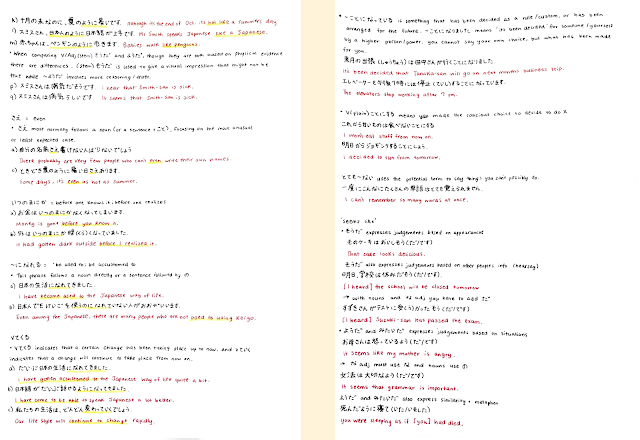 k) 十月の末なのに、夏のように暑いです。 Although it's the end of Oct. it's hot like a summer's day.
l) スミスさんは、日本人のように日本語が上手です。 Mr. Smith speaks Japanese like a Japanese.
m) 赤ちゃんは、ペンギンのように歩きます。 Babies walk like penguins.
* When comparing V/Adj(stem) そうだ and ようだ, though they are both based on physical evidence
there are differences. (stem) そうだ is used to give a visual impression that might not be
that while ～ようだ involves more reasoning/
p) スミスさんは病気だそうです。 I hear that Smith-san is sick.
q) スミスさんは病気らしいです。 It seems that Smith-san is sick.
さえ : even
* さえ most normally follows a noun (or a sentence + こと), focusing on the most unusual
or least expected case.
a) 自分の名前さえ書けない人は少ないでしょう
There probably are very few people who can't even write their own names.
c) ときどき夏のように暑い日さえあります。
Some days, it's even as hot as summer.
いつのまにか : before one knows it; before one realizes
a) お金はいつのまにかなくなってしまいます。
Money is gone before you know it.
b) 外はいつのまにか暗(くら)くなっていました。
It had gotten dark outside before I realised it.
～になれる : 'be used to; be accustomed to'
* This phrase follows a noun directly or a sentence followed by の
a) 日本の生活になれてきました。
I have become used to the Japanese way of life.
Even among the Japanese, there are many people who are not used to using keigo.
Vてくる
* Vてくる indicates that a certain change has been taking place up to now, and Vていく
indicates that a change will continue to take place from now on.
a) だいぶ日本の生活になれてきました。
I have gotten accustomed to the Japanese way of life quite a bit.
b) 日本語がだいぶ話せるようになってきました。
I have come to be able to speak Japanese a lot better.
c) 私たちの生活は、どんどん変わっていくでしょう
Our life style will continue to change rapidly.
* ～ことになっている is something that has been decided as a rule/custom, or has been
arranged for the future. ～ことになりました means 'is been decided' for someone/yourself
by a higher person/power. you cannot say your own choice, but what has been made
for you.
来月の出張(しゅっちょう)は田中さんが行くことになりました。
It's been decided that Tanaka-san will go on next months business trip.
The elevators stop working after 7 pm.
* V(plain)ことにする means you made the conscious choice to decide to do X
これから甘いものは食べないことにする
I won't eat stuff from now on.
明日からジョギングすることにしましょう。
I decided to run from tomorrow.
とても～ない uses the potential form to say things you can't possibly do.
一度にこんなにたくさんの単語はとても覚えられません。
I can't remember so many words at once.
'seems like'
* そうだ expresses judgements based on appearances
そのケーキはおいしそう(だ/です)
That cake looks delicious.
そうだ also expresses judgements based on other peoples info (hearsay)
明日、学校は休みだそう(だ/です)。
[I heard] the school will be closed tomorrow.
→ with nouns and な adj you have to add だ
すずきさんがテストに受(う)かったそう(だ/です)
[I heard] Suzuki-san has passed the exam.
* ようだ and みたいだ expresses judgements based on situations
お母さんは怒っているよう(だ/です)
It seems like my mother is angry.
→ な adj must use な and nouns use の
文法は大切なよう(だ/です)
It seems that grammar is important.
ようだ and みたいだ also express similarities + metaphor
死んだように寝て(い)た/いました)
you were sleeping as if [you] had died.